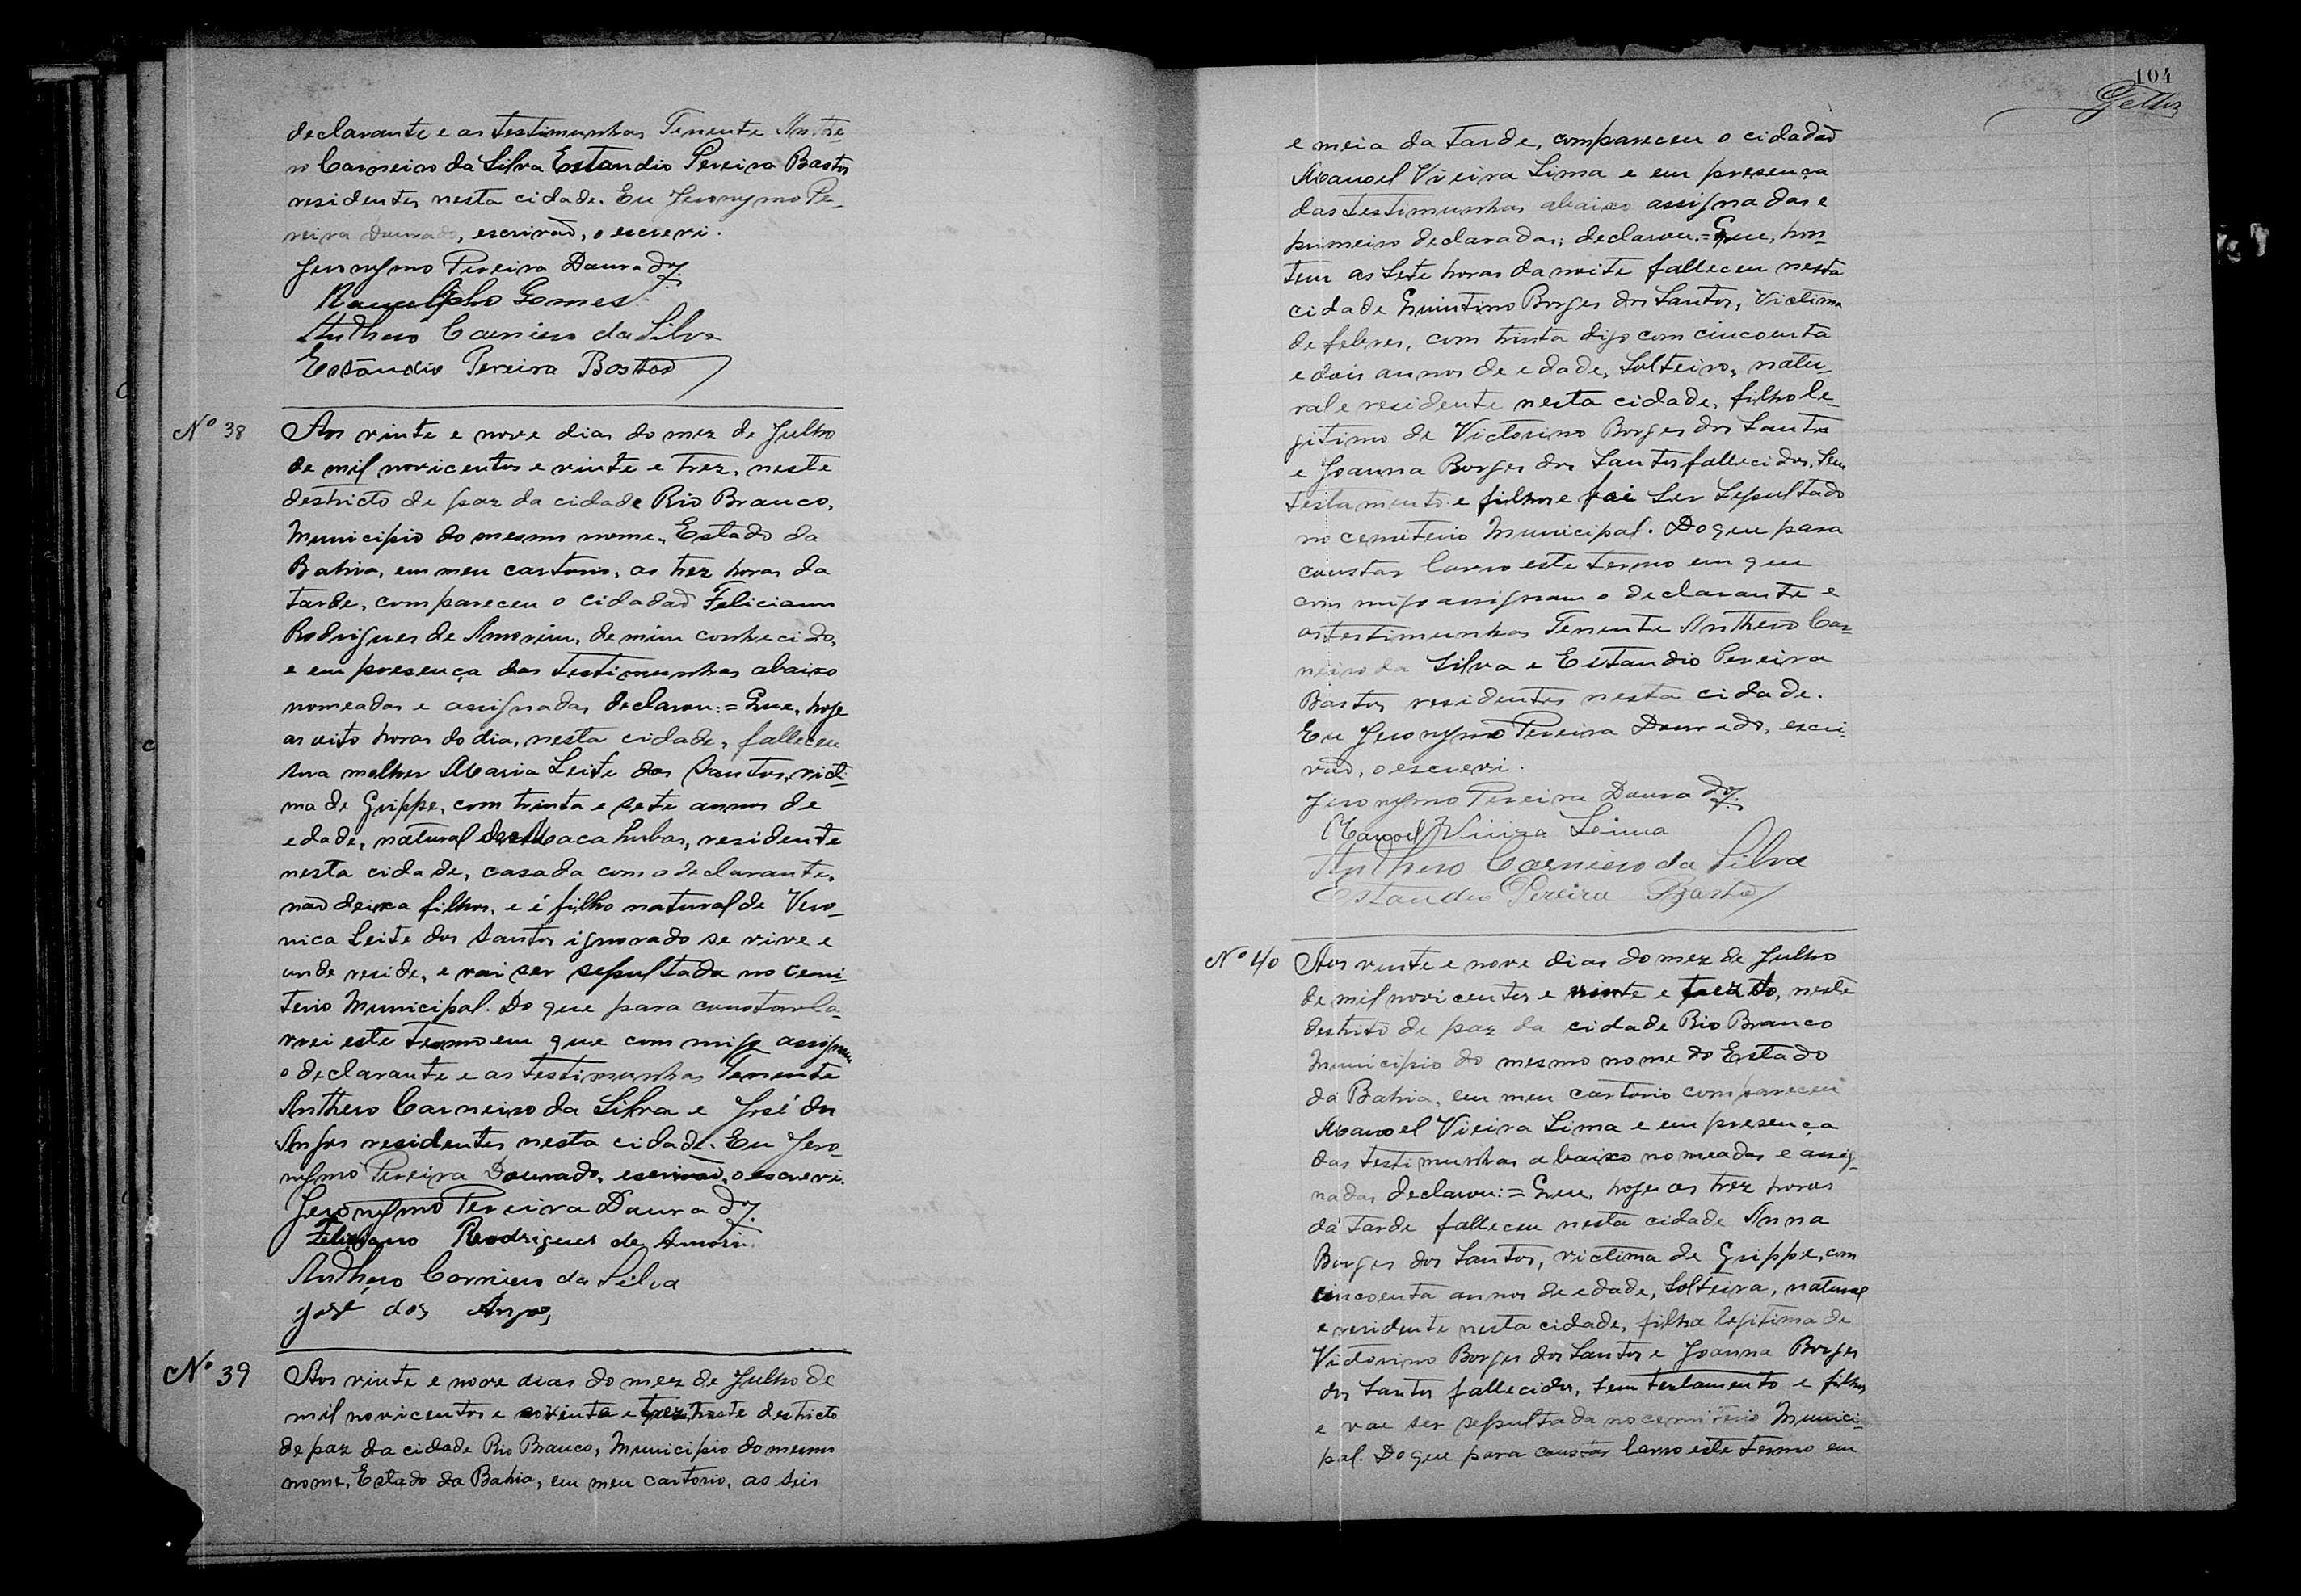 declarante e as testimunhas Tenente Anthe
ro Carneiro da Silva Estandio Pereira Bastos
residentes nesta cidade. Eu Jeronymo Pe-
reira Dourado, escrivaõ, o escrevi.
Jeronymo Pereira Dourado
Gomes
Anthero Carneiro da Silva
Estandio Pereira Bastos
Nº 38
Aos vinte e nove dias do mez de Julho
de mil novicentos e vinte e trez, neste
destricto de paz da cidade Rio Branco,
Municipio do mesmo nome, Estado da
Bahia, em meu cartorio, as trez horas da
tarde, compareceu o cidadaõ Feliciano
Rodrigues de Amorim, de mim conhecido,
e em presença das testimunhas abaixo
nomeadas e assignadas declarou:= Que, hoje
as oito horas do dia, nesta cidade, falleceu
sua molher Maria Leite dos Santos, victi-
ma de Grippe, com trinta e sete annos de
edade, natural de Macahubas, residente
nesta cidade, casada com o declarante,
naõ deixa filhos, e é filho natural de Vero-
nica Leite dos Santos ignorado se vive e
onde reside, e vai ser sepultada no cemi-
terio Municipal. Do que para constar la-
vrei este termo em que com migo assignam
o declarante e as testimunhas Tenente
Anthero Carneiro da Silva e José dos
Anjos residentes nesta cidade. Eu Jero-
nymo Pereira Dourado, escrivaõ, o escrevi.
Jeronymo Pereira Dourado
Feliciano Rodrigues de Amorim
Anthero Carneiro da Silva
José dos Anjos
Nº 39
Aos vinte e nove dias do mez de Julho de
mil novicentos e vinte e trez, neste destricto
de paz da cidade Rio Branco, Municipio do mesmo
nome, Estado da Bahia, em meu cartorio, as seis
104
e meia da tarde, compareceu o cidadaõ
Manoel Vieira Lima e em presença
das testimunhas abaixo assignadas e
primeiro declaradas; declarou:= Que, hon-
tem as sete horas da noite falleceu nesta
cidade Quintino Borges dos Santos, victima
de febres, com trinta digo com cincoenta
e dois annos de edade, solteiro, natu-
ral e residente nesta cidade, filho le-
gitimo de Victorino Borges dos Santos
e Joanna Borges dos Santos fallecidos, sem
testamento e filhos e foi ser sepultado
no cemiterio Municipal. Do que para
constar lavro este termo em que
com migo assignam o declarante e
as testimunhas Tenente Anthero Car-
neiro da Silva e Estandio Pereira
Bastos residentes nesta cidade.
Eu Jeronymo Pereira Dourado, escri-
vaõ, o escrevi.
Jeronymo Pereira Dourado
Manoel Vieira Lima
Anthero Carneiro da Silva
Estandio Pereira Bastos
Nº 40
Aos vinte e nove dias do mez de Julho
de mil novicentos e vinte e trez, neste
destrito de paz da cidade Rio Branco
Municipio do mesmo nome do Estado
da Bahia, em meu cartorio compareceu
Manoel Vieira Lima e em presença
das testimunhas abaixo nomeadas e assig-
nadas declarou:= Que, hoje as trez horas
da tarde falleceu nesta cidade Anna
Borges dos Santos, victima de Grippe, com
cincoenta annos de edade, solteira, natural
e residente nesta cidade, filha legitima de
Victorino Borges dos Santos e Joanna Borges
dos Santos fallecidos, sem testamento e filhos
e vae ser sepultada no cemiterio Munici-
pal. Do que para constar lavro este termo em